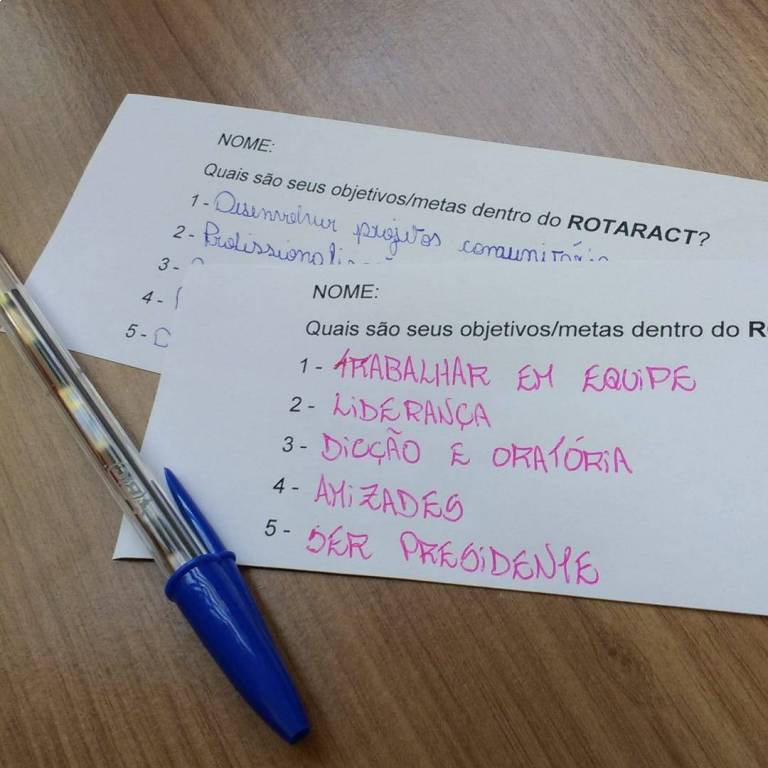 NOME:
Quais são seus objetivos/metas dentro do ROTARACT?
1 - Desenvolver projetos comunitário
2 - Profissionali
3 -
4 -
5 -
NOME:
Quais são seus objetivos/metas dentro do R
1 - TRABALHAR EM EQUIPE
2 - LiDERANÇA
3 - DICÇÃO E ORATÓRiA
4 - AMiZADES
5 - SER PRESiDENTE